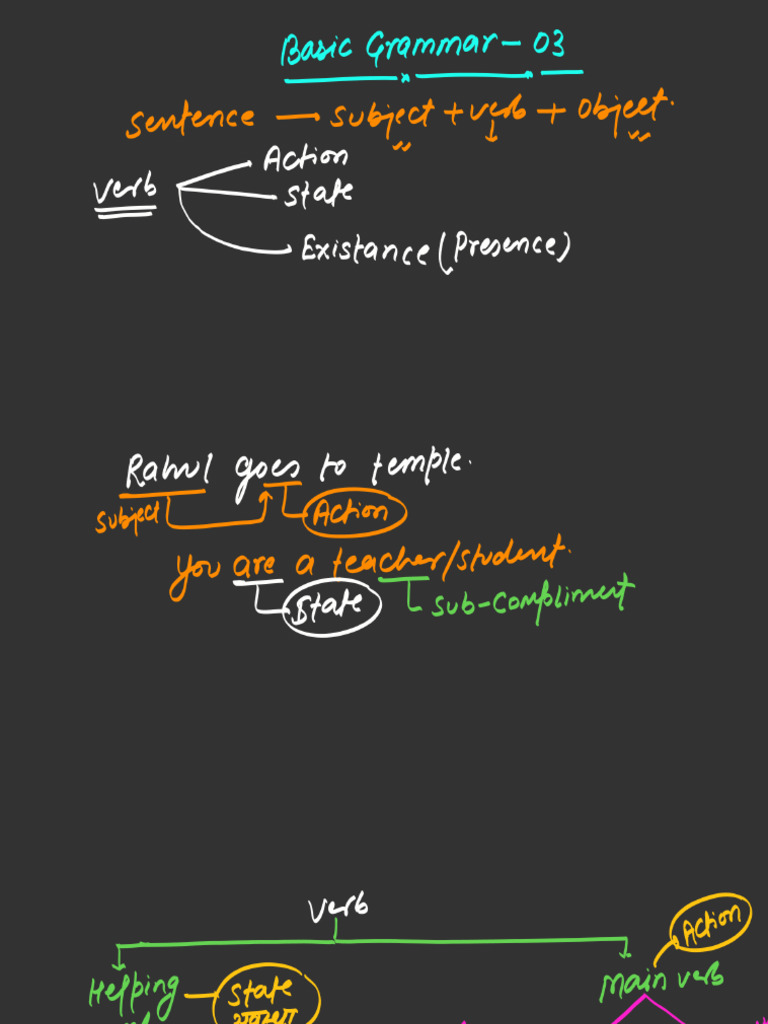 Basic Grammar - 03
Sentence → Subject + Verb + Object.
Verb
Action
State
Existance (Presence)
Rahul goes to temple.
Subject
Action
You are a teacher/student.
State
Sub-Compliment
Verb
Action
Helping
State
Main verb